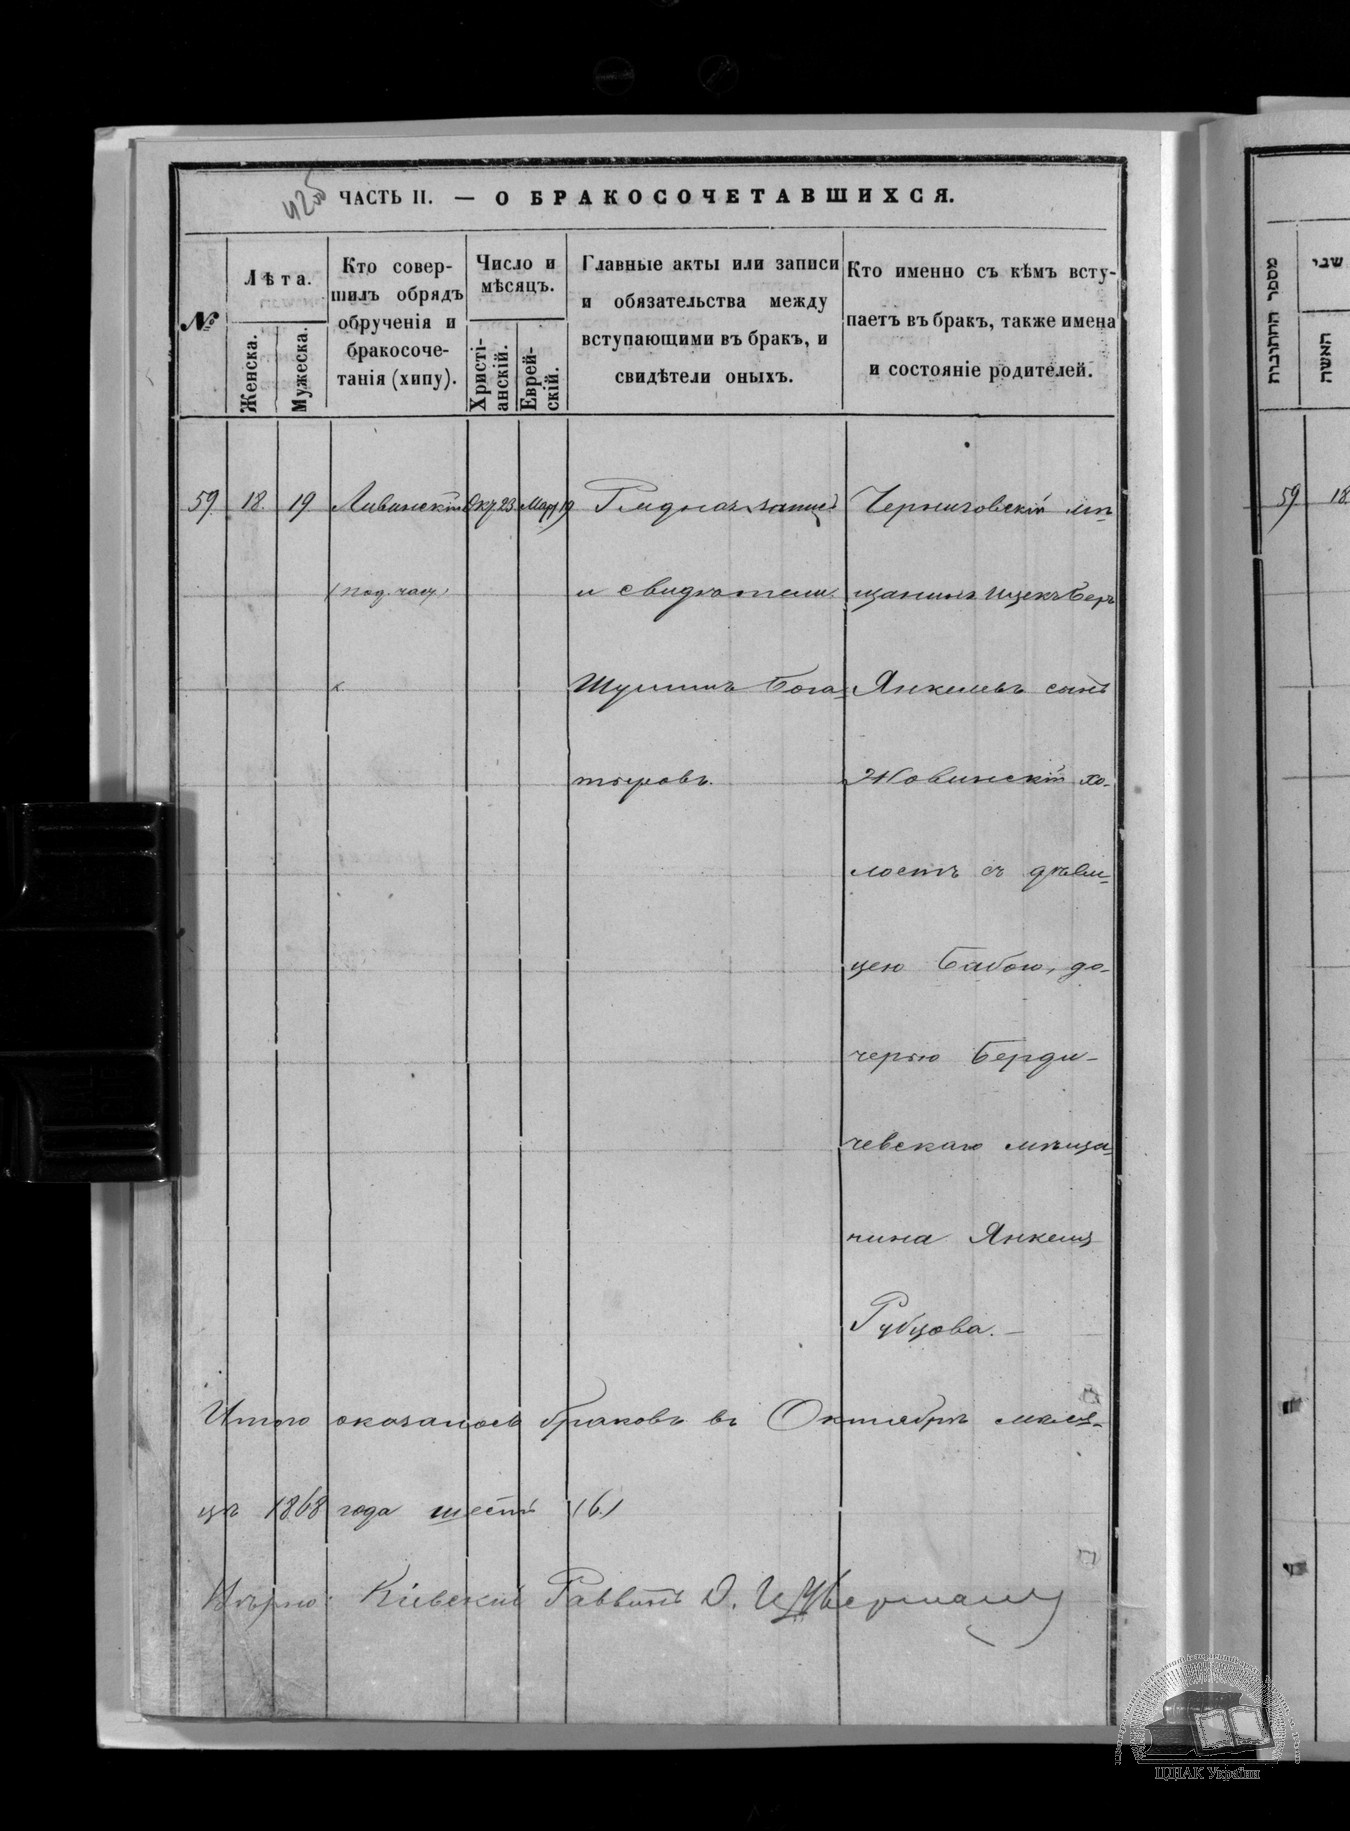 42об
ЧАСТЬ II. — О БРАКОСОЧЕТАВШИХСЯ.
№
Лѣта.
Женска.
Мужеска.
Кто совер-
шилъ обрядъ
обрученія и
бракосоче-
танія (хипу).
Число и
мѣсяцъ.
Христі-
анскій.
Еврей-
скій.
Главные акты или записи
и обязательства между
вступающими въ бракъ, и
свидѣтели оныхъ.
Кто именно съ кѣмъ всту-
паетъ въ бракъ, также имена
и состояніе родителей.
59 18. 19 Окт 23 19
и свидѣтели
Бога-
тыровъ.
Черниговскій мѣ-
щанинъ Ицекъ Беръ
Янкелевъ сынъ
хо-
лостъ съ дѣви-
цею Бабою, до-
черью Берди-
чевскаго мѣща-
нина Янкеля
Рубцова. —
Итого оказалось браковъ въ Октябрѣ мѣся-
цѣ 1868 года шесть (6)
Вѣрно: Кіевскій Раввинъ
מספר החתונות
שני
האשה
59 18
ЦДІАК України